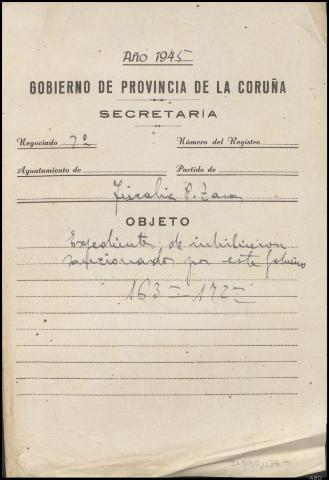 Año 1945
GOBIERNO DE PROVINCIA DE LA CORUÑA
SECRETARÍA
Negociado 7º Número del Registro
Ayuntamiento de Partido de
Fiscalia P. Tasas
OBJETO
Expedientes de inhibicion
sancionado por este Gobierno
163 = 172 =